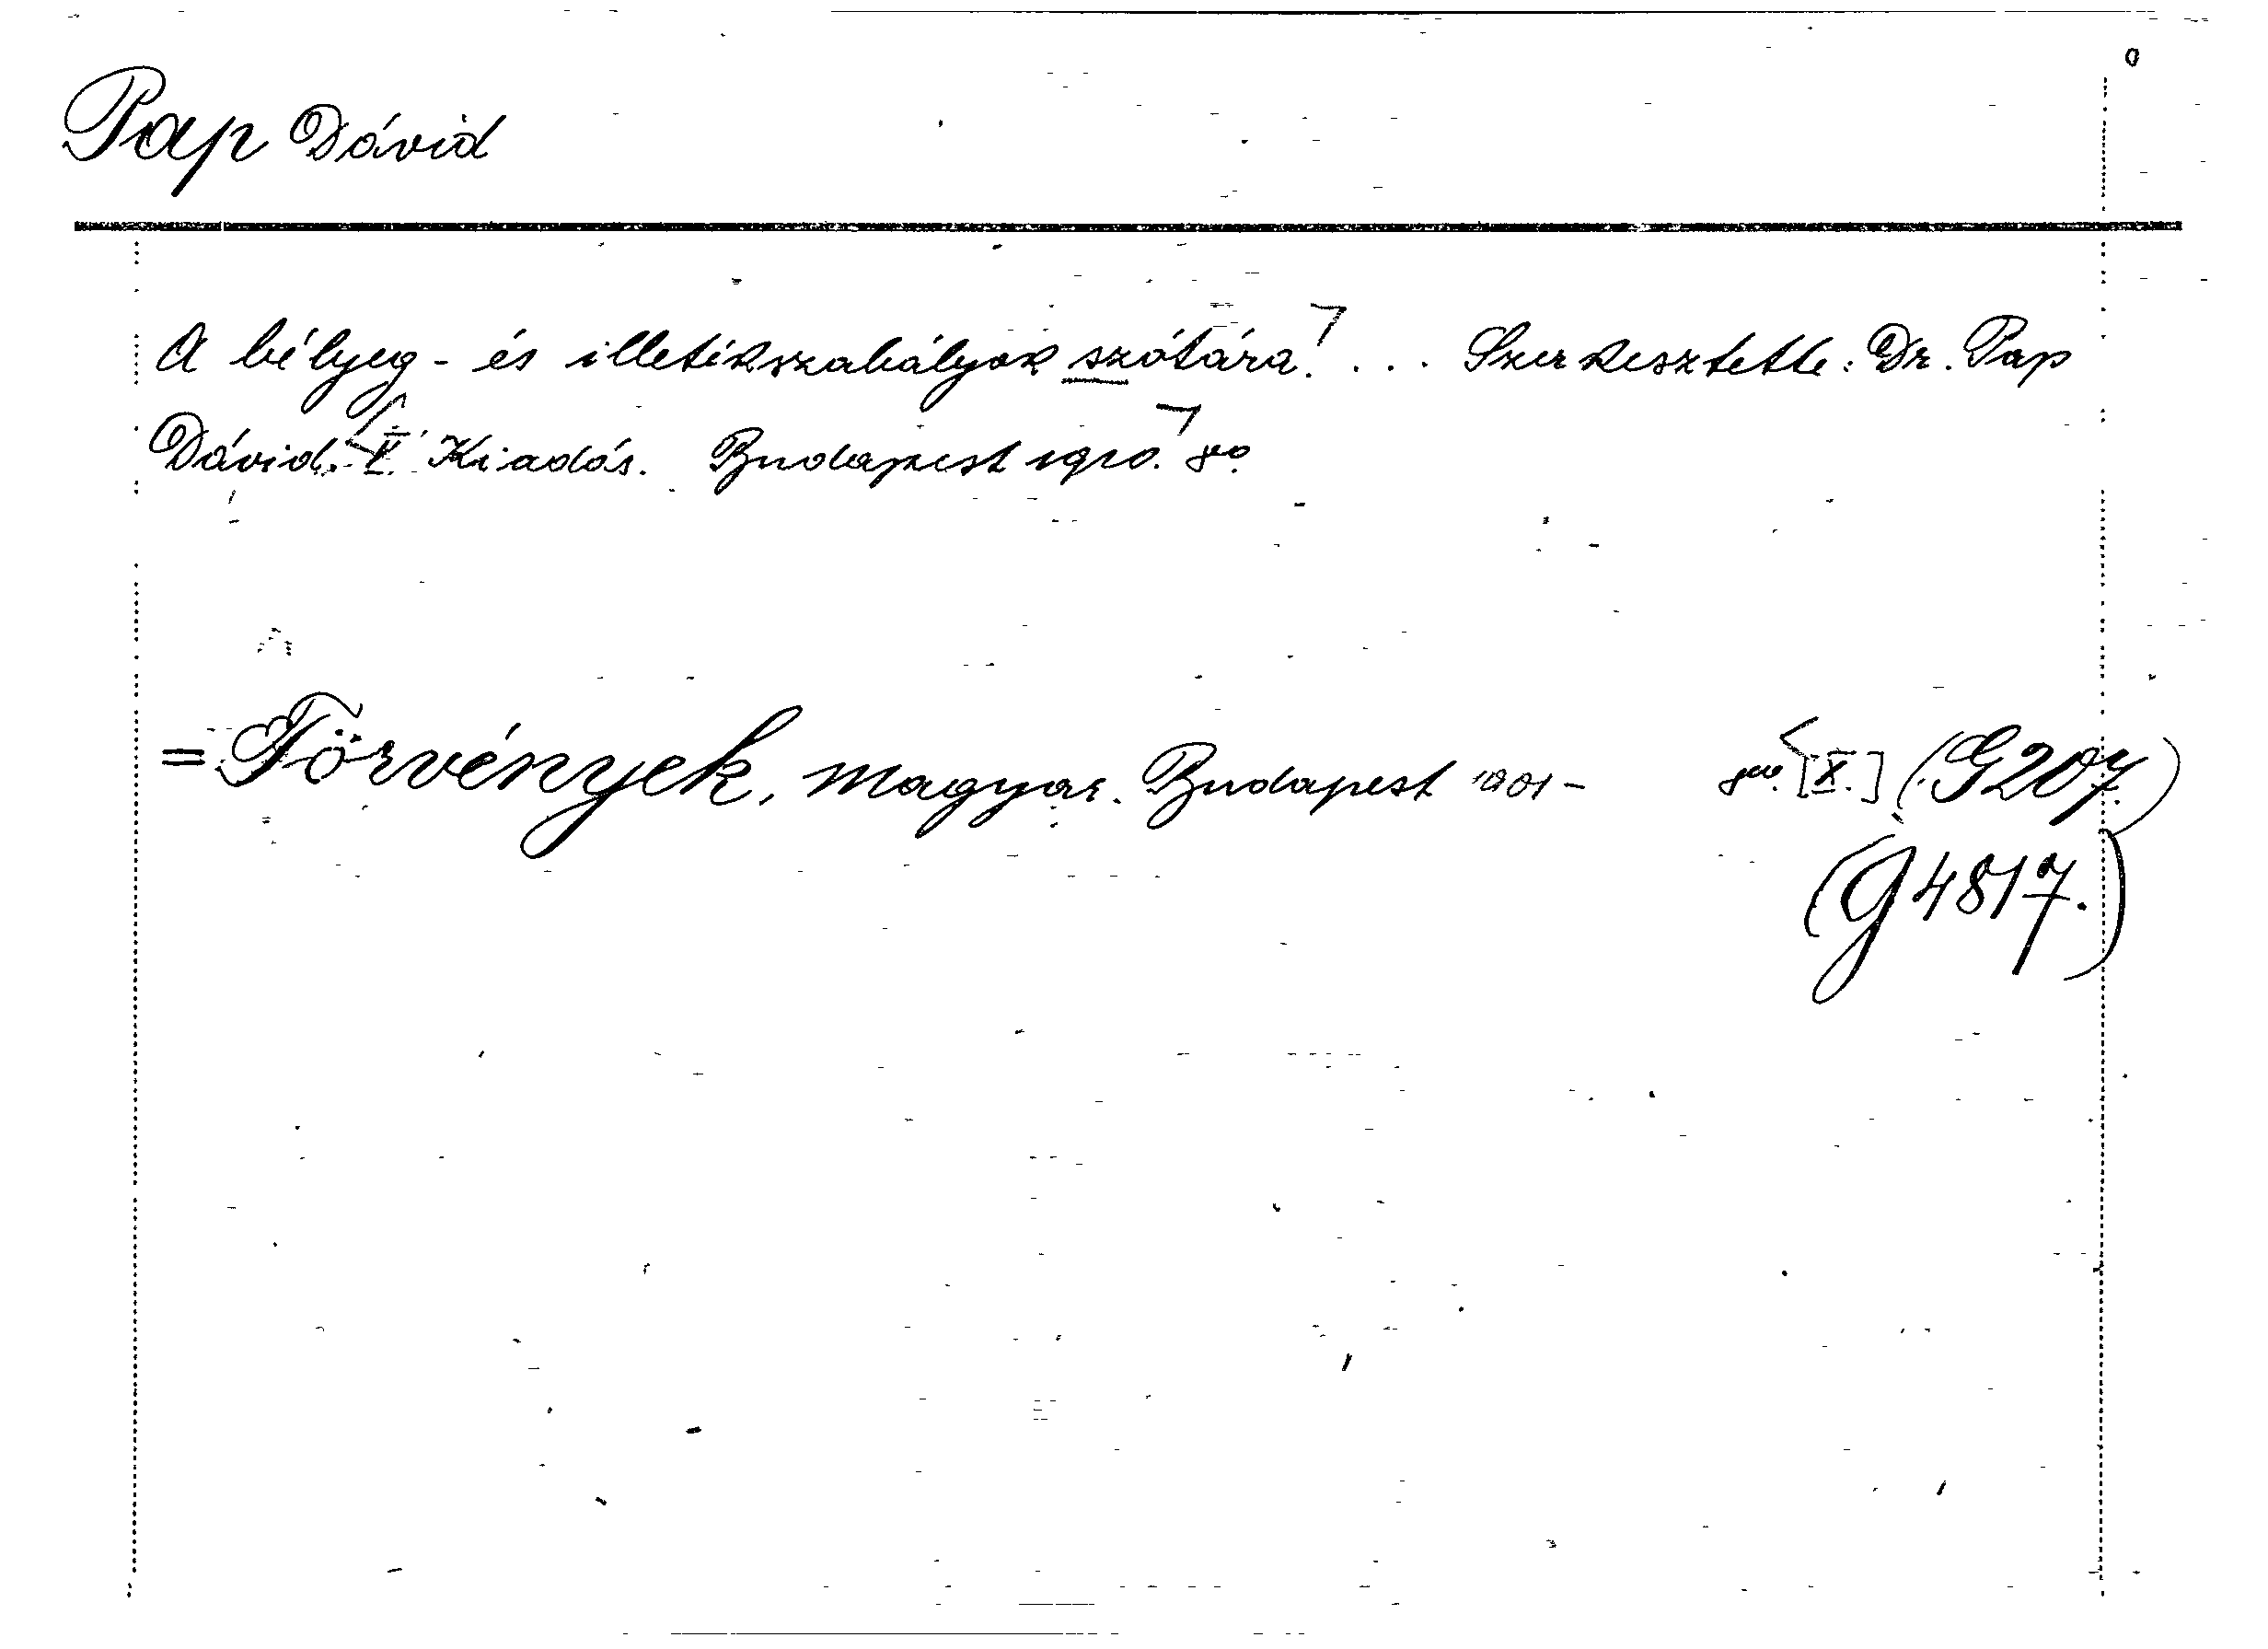 Pap Dávid
A bélyeg- és illetékszabályok szótára. ... Szerkesztette: Dr. Pap
Dávid. X. Kiadás. Budapest 1910. 8o.
= Törvények, magyar. Budapest 1901- 8vo. [X.] (G207.)
(G4817.)